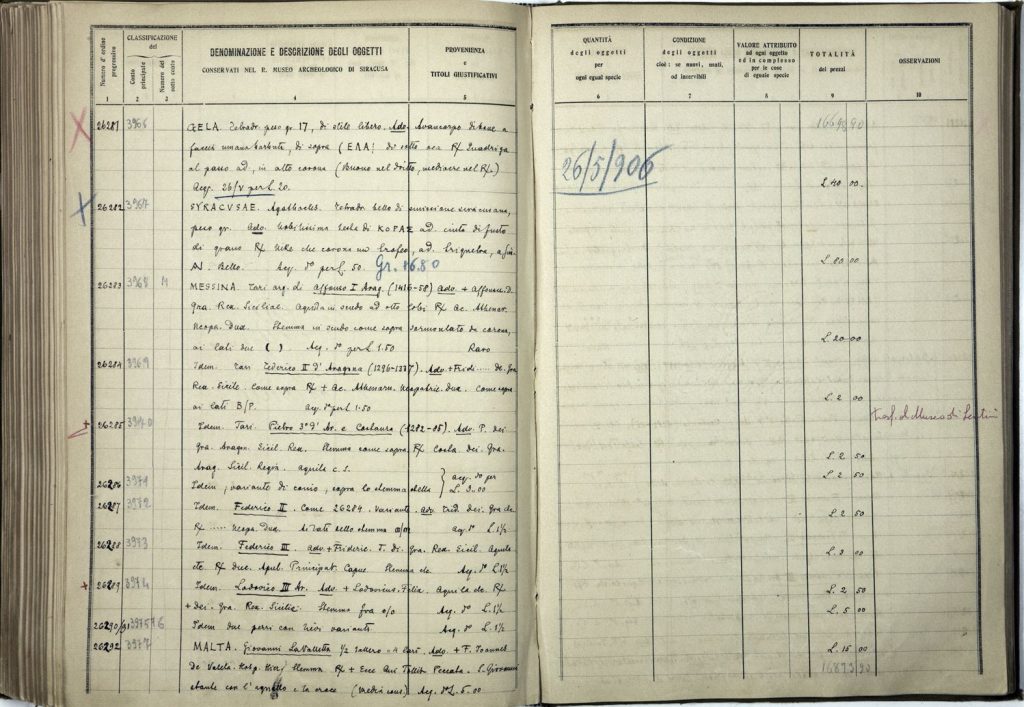 Numero d'ordine progressivo
CLASSIFICAZIONE del
Conto principale
Numero del sotto conto
DENOMINAZIONE E DESCRIZIONE DEGLI OGGETTI
CONSERVATI NEL R. MUSEO ARCHEOLOGICO DI SIRACUSA
PROVENIENZA
e
TITOLI GIUSTIFICATIVI
1 2 3 4 5
26281 3966 GELA. Tetradr. peso gr. 17, di stile libero. Adv. Avancorpo di bove a
faccia umana barbuta, di sopra
al passo ad., in alto corona (Buono nel dritto, mediocre nel R/.)
Acq. 26/V per L. 20.
26282 3967 SYRACVSAE. Agathocles. Tetradr. bello di emissione siracusana,
peso gr. Adv. Nobilissima testa di ΚΟΡΑΣ ad. cinta di
di grano R/ Nike che corona un trofeo, ad. triquetra, a sin.
Bello. Acq. do per L. 50. Gr. 16.80
26283 3968 M MESSINA. Tari arg. di Alfonso I Arag. (1416-58) Adv. + Alfonsu. D.
Gra. Rex. Siciliae. R/ Ac. Athenar.
Neopa. Dux. Stemma in scudo come sopra sormontato da corona,
ai lati due ( ) Acq. do per L. 1.50 Raro
26284 3969 Idem. Tari Federico II d'Aragona (1296-1337). Adv. + Frid..... de. Gra
Rex. Sicile. Come sopra R/ + Ac. Athenaru. Neopatrie. Dux. Come sopra
ai lati B/P. acq. do per L. 1.50
26285 3970 Idem. Tari. Pietro 3° d'Ar. e Costanza (1282-85). Adv. P. dei
Gra. Aragon. Sicil. Rex. Stemma come sopra R/ Costa. dei. Gra.
Arag. Sicil. Regin. aquila c.s.
26286 3971 Idem, variante di conio, sopra lo stemma stella } acq. do per L. 3.00
26287 3972 Idem. Federico II. Come 26284. Variante. Adv. Frid. dei. Gra. de
R/ ..... Neopa. Dux. Ai lati dello stemma acq. do L. 1½
26288 3973 Idem. Federico III. adv. + Frideric. T. di. Gra. Rex. Sicil. Aquila
etc. R/ duc. Apul. Principat. Capue. Stemma etc. Acq. do L. 1½
26289 3974 Idem. Lodovico III Ar. Adv. + Lodovicus. Aquila etc. R/
+ dei. Gra. Rex. Sicilie. Stemma fra o/o Acq. do L. 1½
26290/91 3975/76 Idem due pezzi con lievi varianti. Acq. do L. 1½
26292 3977 MALTA. Giovanni La Valletta ½ tallero = 4 tarì. Adv. + F. Joannes
de Valeta. Hosp. Hier. Stemma R/ + Ecce Qui Tollit Peccata. S. Giovanni
stante con l'agnello e la croce (mediocons.) Acq. do L. 5.00
QUANTITÀ
degli oggetti
per
ogni egual specie
CONDIZIONE
degli oggetti
cioè: se nuovi, usati,
od inservibili
VALORE ATTRIBUITO
ad ogni oggetto
ed in complesso
per le cose
di eguale specie
TOTALITÀ
dei prezzi
OSSERVAZIONI
6 7 8 9 10
26/5/906
L. 40 00
L. 80 00
L. 20 00
L. 2 00
trasf. al Museo di Lentini
L. 2 50
L. 2 50
L. 2 50
L. 3 00
L. 2 50
L. 5 00
L. 15 00
16873 90